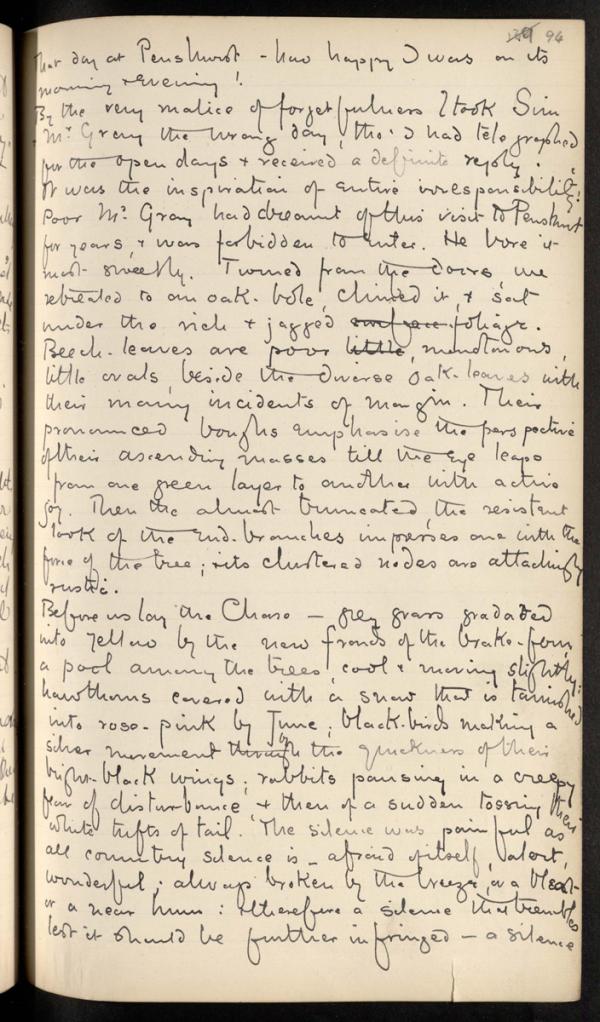 94
That day at Penshurst - how happy I was on its
morning & evening!
By the very malice of forgetfulness I took Sim
& Mr Gray the wrong day, tho' I had telegraphed
for the open days & received a definite reply.
It was the inspiration of entire irresponsibility!
Poor Mr. Gray had dreamt of this visit to Penshurst
for years, & was forbidden to enter. He bore it
most sweetly. Turned from the doors, we
retreated to an oak-bole, climbed it, & sat
under the rich & jagged surface foliage.
Beech-leaves are poor little, monotonous,
little ovals, beside the diverse oak-leaves with
their many incidents of margin. Their
pronounced boughs emphasise the perspective
of their ascending masses till the eye leaps
from one green layer to another with active
joy. Then the almost truncated, the resistent
look of the end-branches impresses one with the
force of the tree; & its clustered nodes are attachingly
rustic.
Before us lay the Chase - grey grass gradated
into yellow by the new fronds of the brake-fern,
a pool among the trees, cool & moving slightly;
hawthorns covered with a snow that is tarnished
into rose-pink by June; black-birds making a
silver movement through by the quickness of their
bright-black wings; rabbits pausing in a creepy
fear of disturbance, & then of a sudden tossing their
white tufts of tail. The silence was painful as
all country silence is - afraid of itself, alert,
wonderful; always broken by the breeze, or a bleat
or a near hum: & therefore a silence that trembles
lest it should be further infringed - a silence